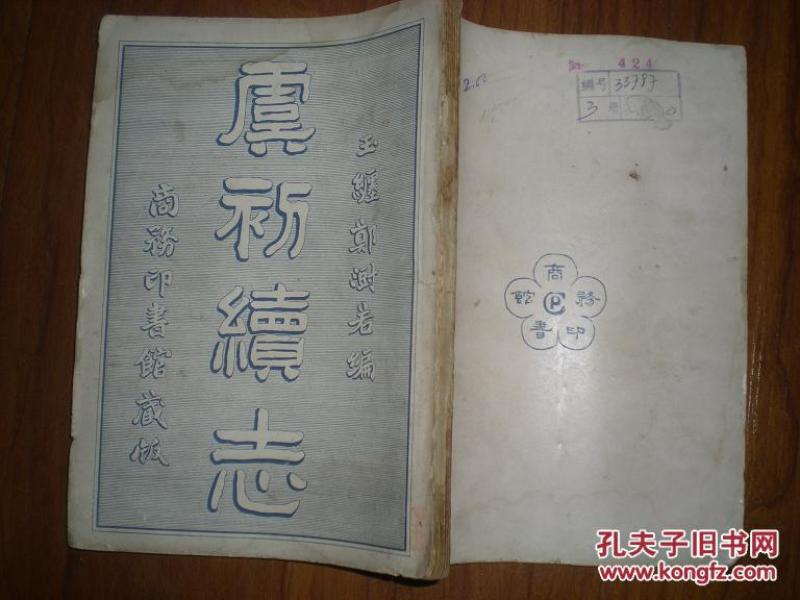 玉纏鄭澍若編
虞初續志
商務印書館藏版
424
2.60
編号 33797
3 册
商務印書館
孔夫子旧书网
www.kongfz.com